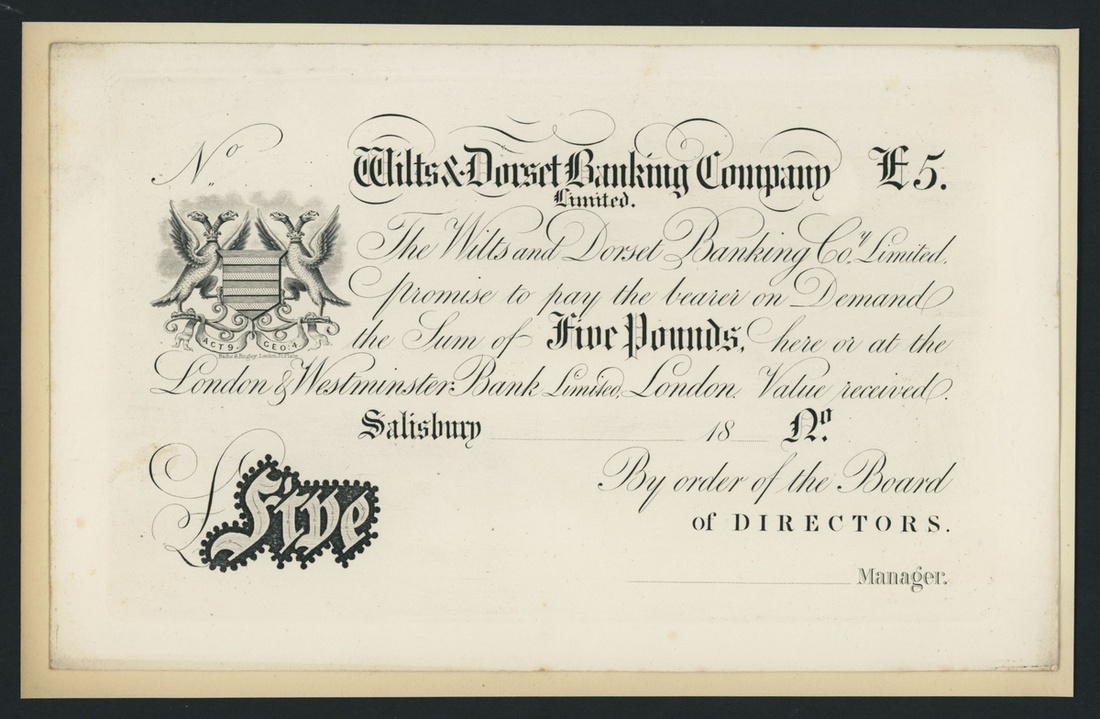 No
Wilts & Dorset Banking Company £5.
Limited.
The Wilts and Dorset Banking Coy. Limited,
promise to pay the bearer on Demand
the Sum of Five Pounds, here or at the
ACT 9. GEO: 4.
London & Westminster Bank Limited, London. Value received.
Salisbury 18 No.
£Five
By order of the Board
of DIRECTORS.
Manager.